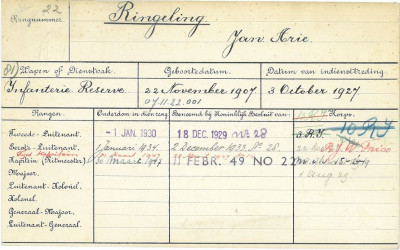 22
Rangnummer
Ringeling
Jan Arie.
Wapen of Dienstvak.
Geboortedatum.
Datum van indiensttreding.
Infanterie Reserve
22 November 1907
3 October 1927
07.11.22.001
Rangen.
Ouderdom in den rang.
Benoemd bij Koninklijk Besluit van:
Korps.
Tweede-Luitenant.
-1 JAN. 1930
18 DEC. 1929 nº 28
10 R.I.
Eerste-Luitenant.
1 Januari 1934.
2 December 1933. No 28.
Kapitein (Ritmeester)
30 Maart 1947
FEBR. 49 NO 22
Majoor.
1 Aug 49
Luitenant-Kolonel.
Kolonel.
Generaal-Majoor.
Luitenant-Generaal.